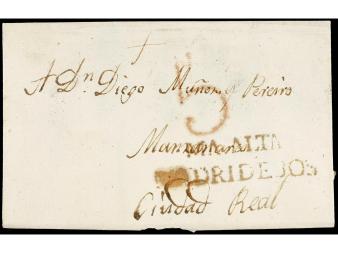 A Dn. Diego Muñoz y Pereiro
5
Manzanares
MA ALTA
MADRIDEJOS
Ciudad Real